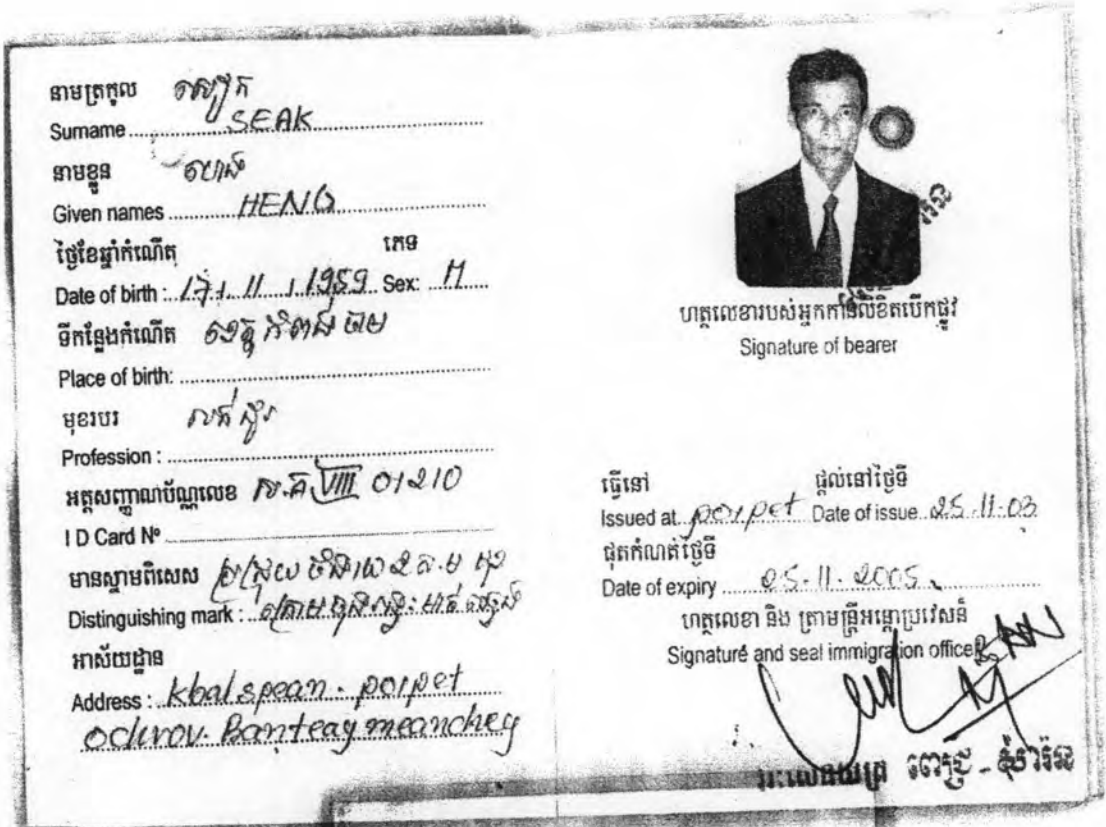 នាមត្រកូល សៀក
Surname SEAK
នាមខ្លួន ហេង
Given names HENG
ថ្ងៃខែឆ្នាំកំណើត ភេទ
Date of birth : 17 / 11 / 1959 Sex: M
ទីកន្លែងកំណើត ខេត្ត កំពង់ ចាម
Place of birth:
មុខរបរ លក់ ដូរ
Profession :
អត្តសញ្ញាណប័ណ្ណលេខ VIII 01210
I D Card Nº
មានស្នាមពិសេស ប្រជ្រុយ ចំងាយ
Distinguishing mark :
អាស័យដ្ឋាន
Address : kbalspean. poipet
ochrov. Banteay meanchey
ហត្ថលេខារបស់អ្នកកាន់លិខិតបើកផ្លូវ
Signature of bearer
ធ្វើនៅ ផ្តល់នៅថ្ងៃទី
Issued at poipet Date of issue 25.11.03
ផុតកំណត់ថ្ងៃទី
Date of expiry 25.11.2005
ហត្ថលេខា និង ត្រាមន្ត្រីអន្តោប្រវេសន៍
Signature and seal immigration officer
ពេជ្រ - សុំារ៉ន